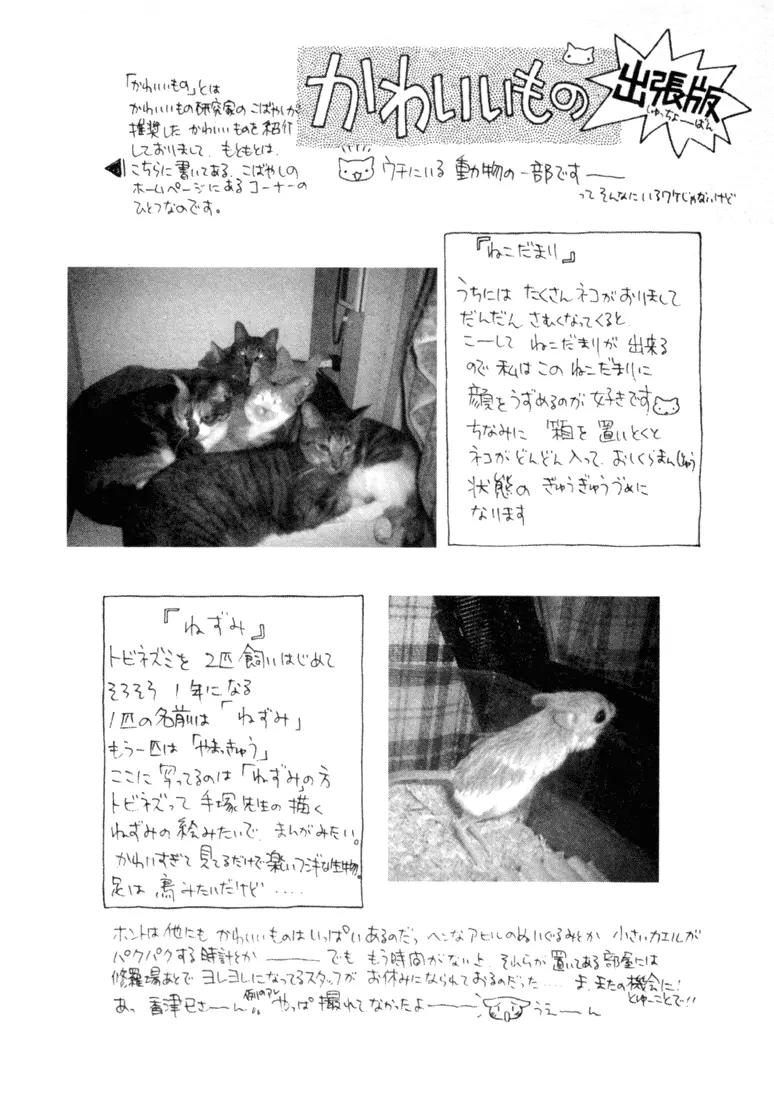 かわいいもの
出張版
しゅっちょーばん
「かわいいもの」とは
かわいいもの研究家のこばやしが
推奨した かわいいものを紹介
しておりまして、もともとは、
こちらに書いてある、こばやしの
ホームページにあるコーナーの
ひとつなのです。
ウチにいる 動物の一部です——
って そんなにいるワケじゃないけど
『ねこだまり』
うちには たくさんネコがおりまして
だんだん さむくなってくると、
こーして ねこだまりが 出来る
ので 私は この ねこだまりに
顔をうずめるのが 好きです
ちなみに 箱を 置いとくと
ネコがどんどん入って、おしくらまんじゅう
状態の ぎゅうぎゅうづめに
なります
『ねずみ』
トビネズミを 2匹 飼いはじめて
そろそろ 1年になる
1匹の名前は「ねずみ」
もう一匹は「やまっきゅう」
ここに 写ってるのは「ねずみ」の方
トビネズって 手塚先生の描く
ねずみの絵みたいで、まんがみたい。
かわいすぎて 見てるだけで楽しいフシギな生物。
足は 鳥みたいだけど‥‥
ホントは他にも かわいいものはいっぱいあるのだっ ヘンなアヒルのぬいぐるみとか 小さいカエルが
パクパクする時計とか——— でも もう時間がないよ、それらが置いてある部屋には
修羅場あとで ヨレヨレになってるスタッフが お休みになられておるのだった‥‥ ま、またの機会に!
とゆーことで!!
あっ 香津巳さーん!! 例のアレ やっぱ撮れてなかったよ———
うえ——ん